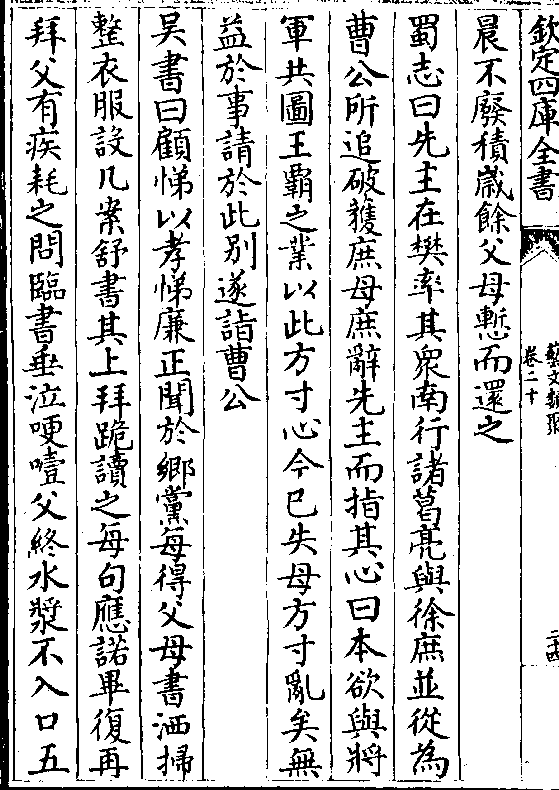 欽定四庫全書
藝文類聚
卷二十
二十四
晨不廢積歲餘父母慙而還之
蜀志曰先主在樊率其眾南行諸葛亮與徐庶並從為
曹公所追破獲庶母庶辭先主而指其心曰本欲與將
軍共圖王霸之業以此方寸心今已失母方寸亂矣無
益於事請於此別遂詣曹公
吳書曰顧悌以孝悌廉正聞於鄉黨每得父母書洒掃
整衣服設几案舒書其上拜跪讀之每句應諾畢復再
拜父有疾耗之問臨書垂泣哽噎父終水漿不入口五